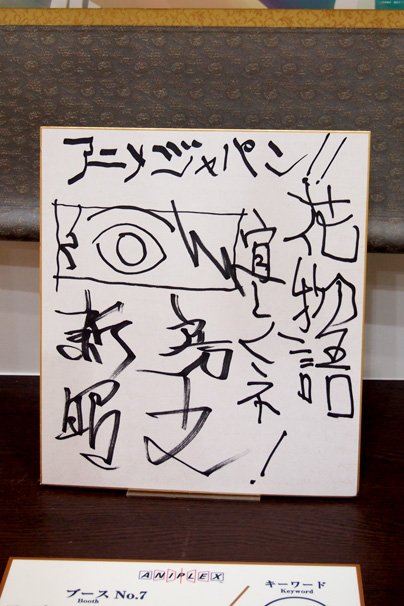 アニメジャパン!!
花物語
宜しくネ!
新房
昭之
ANIPLEX
ブース No.7
Booth
キーワード
Keyword